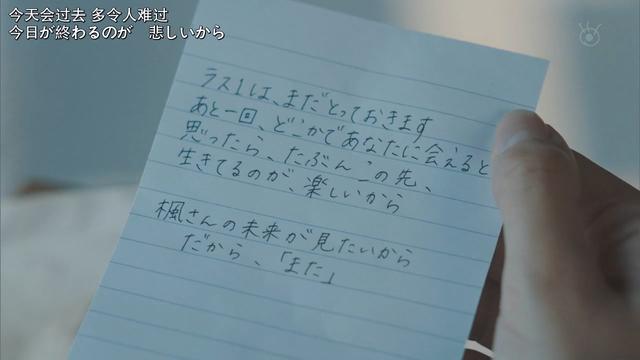 今天会过去 多令人难过
今日が終わるのが 悲しいから
ラス1は、まだとっておきます
あと一回、どこかであなたに会えると
思ったら、たぶんこの先、
生きてるのが、楽しいから
楓さんの未来が見たいから
だから、「また」